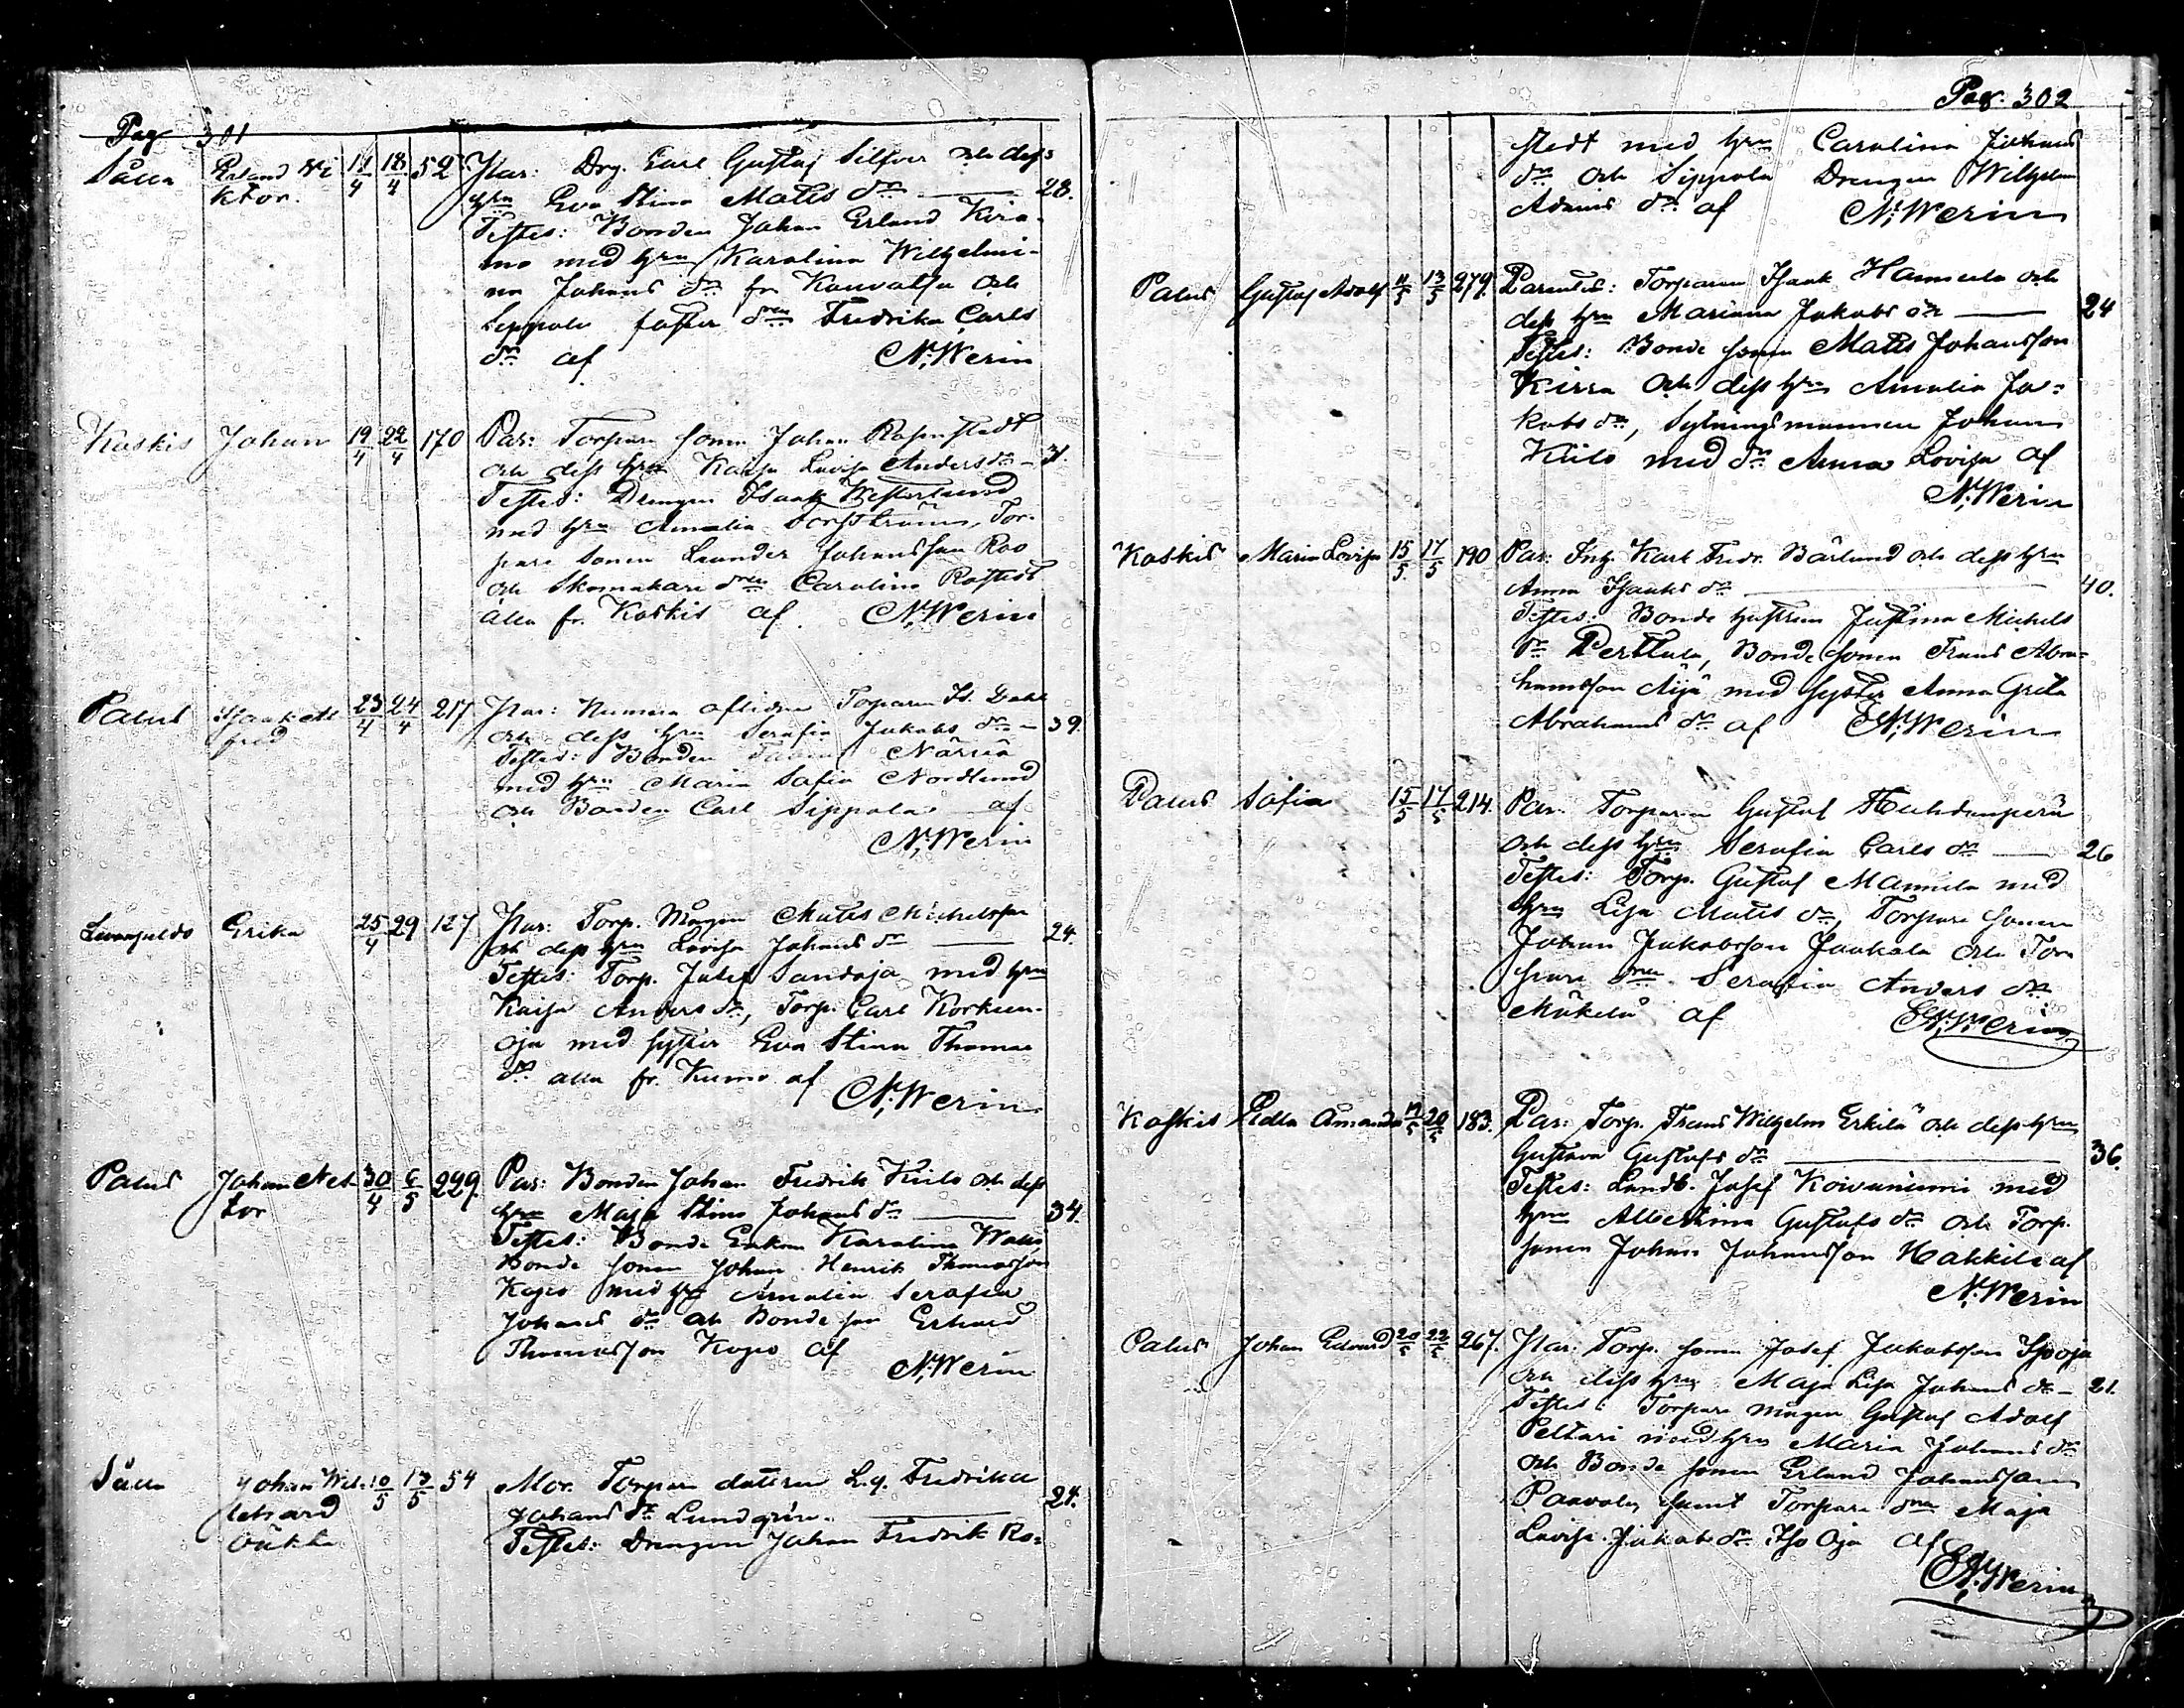 Pag 301
Sålla Erland Vi 11/4 18/4 52 Par: Drg. Carl Gustaf Silfver och dess
ktor. hru Eva Stina Matts dr — 28.
Testes: Bonden Johan Erland
med hru Karolina Wilhelmi-
na Johans dr fr. Kauvatsa och
Seppola Fredrika Carls
dr af N. Werin
Koskis Johan 19/4 22/4 170 Par: Torpare sonen Johan Rosenstedt
och dess hru Kaisa Lovisa Anders dr — 31.
Testes: Drengen Isaak Westerlund
med hru Amalia Forsström, Tor-
pare sonen Leander Johansson Roo
och Skomakare dren Carolina Rostedt
alla fr. Koskis af N. Werin
Palus Isaak Al 23/4 24/4 217 Par: Numera aflidne Torparen Is. Dahl
fred och dess hru Serafia Jakobs dr — 39.
Testes: Bonden Näriä
med hru Maria Sofia Nordlund
och Bonden Carl Sippola af
N. Werin
Erika 25/4 29 127 Par: Torp. Mågen Matts Michelsson
och dess hru Lovisa Johans dr — 24.
Testes: Torp. Josef Sandoja med hru
Kaisa Anders dr, Torp. Carl Korkeen-
oja med syster Eva Stina Thomas
dr alla fr. Kumo af
N. Werin
Palus Johan Nek 30/4 6/5 229. Par: Bonden Johan Fredrik Kiilo och dess
tor hru Maja Stina Johans dr — 34.
Testes: Bonde Enkan Karolina
Bonde sonen Johan Henrik Thomasson
med hru Amalia Serafia
Johans dr och Bonde son Erhard
Thomasson af
N. Werin
Sålla Johan Wil- 10/5 13/5 54 Mor. Torpare dottren L.q. Fredrika
helm Johans dr Lundgrén — 24.
oäkta Testes: Drengen Johan Fredrik Ro-
Pag. 302
stedt med hru Carolina Johans
dr och Sippola Drengen Wilhelm
Adams dr af N. Werin
Palus Gustaf Adolf 11/5 13/5 279. Parentes: Torparen Isaak Hannula och
dess hru Mariana Jakobs dr — 24
Testes: Bonde sonen Matts Johansson
Kirra och dess hru Amalia Ja-
kobs dr, Sytningsmannen Johan
Kiilo med dr Anna Lovisa af
N. Werin
Koskis Maria Lovisa 15/5 17/5 190 Par: Inh. Karl Fredr. Bärlund och dess hru
Anna Isaaks dr — 40.
Testes: Bonde hustrun Justina Michels
dr Perttula, Bonde sonen Frans Abra-
hamsson Äijä med syster Anna Greta
Abrahams dr af N. Werin
Palus Sofia 15/5 17/5 214. Par. Torparen Gustaf Huhdanperä
och dess hru Serafia Carls dr — 26
Testes: Torp. Gustaf Mannila med
hru Lisa Matts dr, Torpare sonen
Johan Jakobsson Jaakola och Tor-
pare dren Serafia Anders dr
Mäkelä af N. Werin
Koskis Edla Amanda 19/5 20/5 183. Par: Torp. Frans Wilhelm Erkilä och dess hru
Gustava Gustafs dr — 36.
Testes: Landb. Josef Koivuniemi med
hru Albertina Gustafs dr och Torp.
sonen Johan Johansson Hakkila af
N. Werin
Palus Johan Edvard 20/5 22/5 267. Par: Torp. sonen Josef Jakobsson Iso oja
och dess hru Maja Lisa Johans dr — 21.
Testes: Torpare mågen Gustaf Adolf
Peltari med hru Maria Johans dr
och Bonde sonen Erland Johansson
Paavola, samt Torpare dren Maja
Lovisa Jakobs dr Iso Oja af
N. Werin